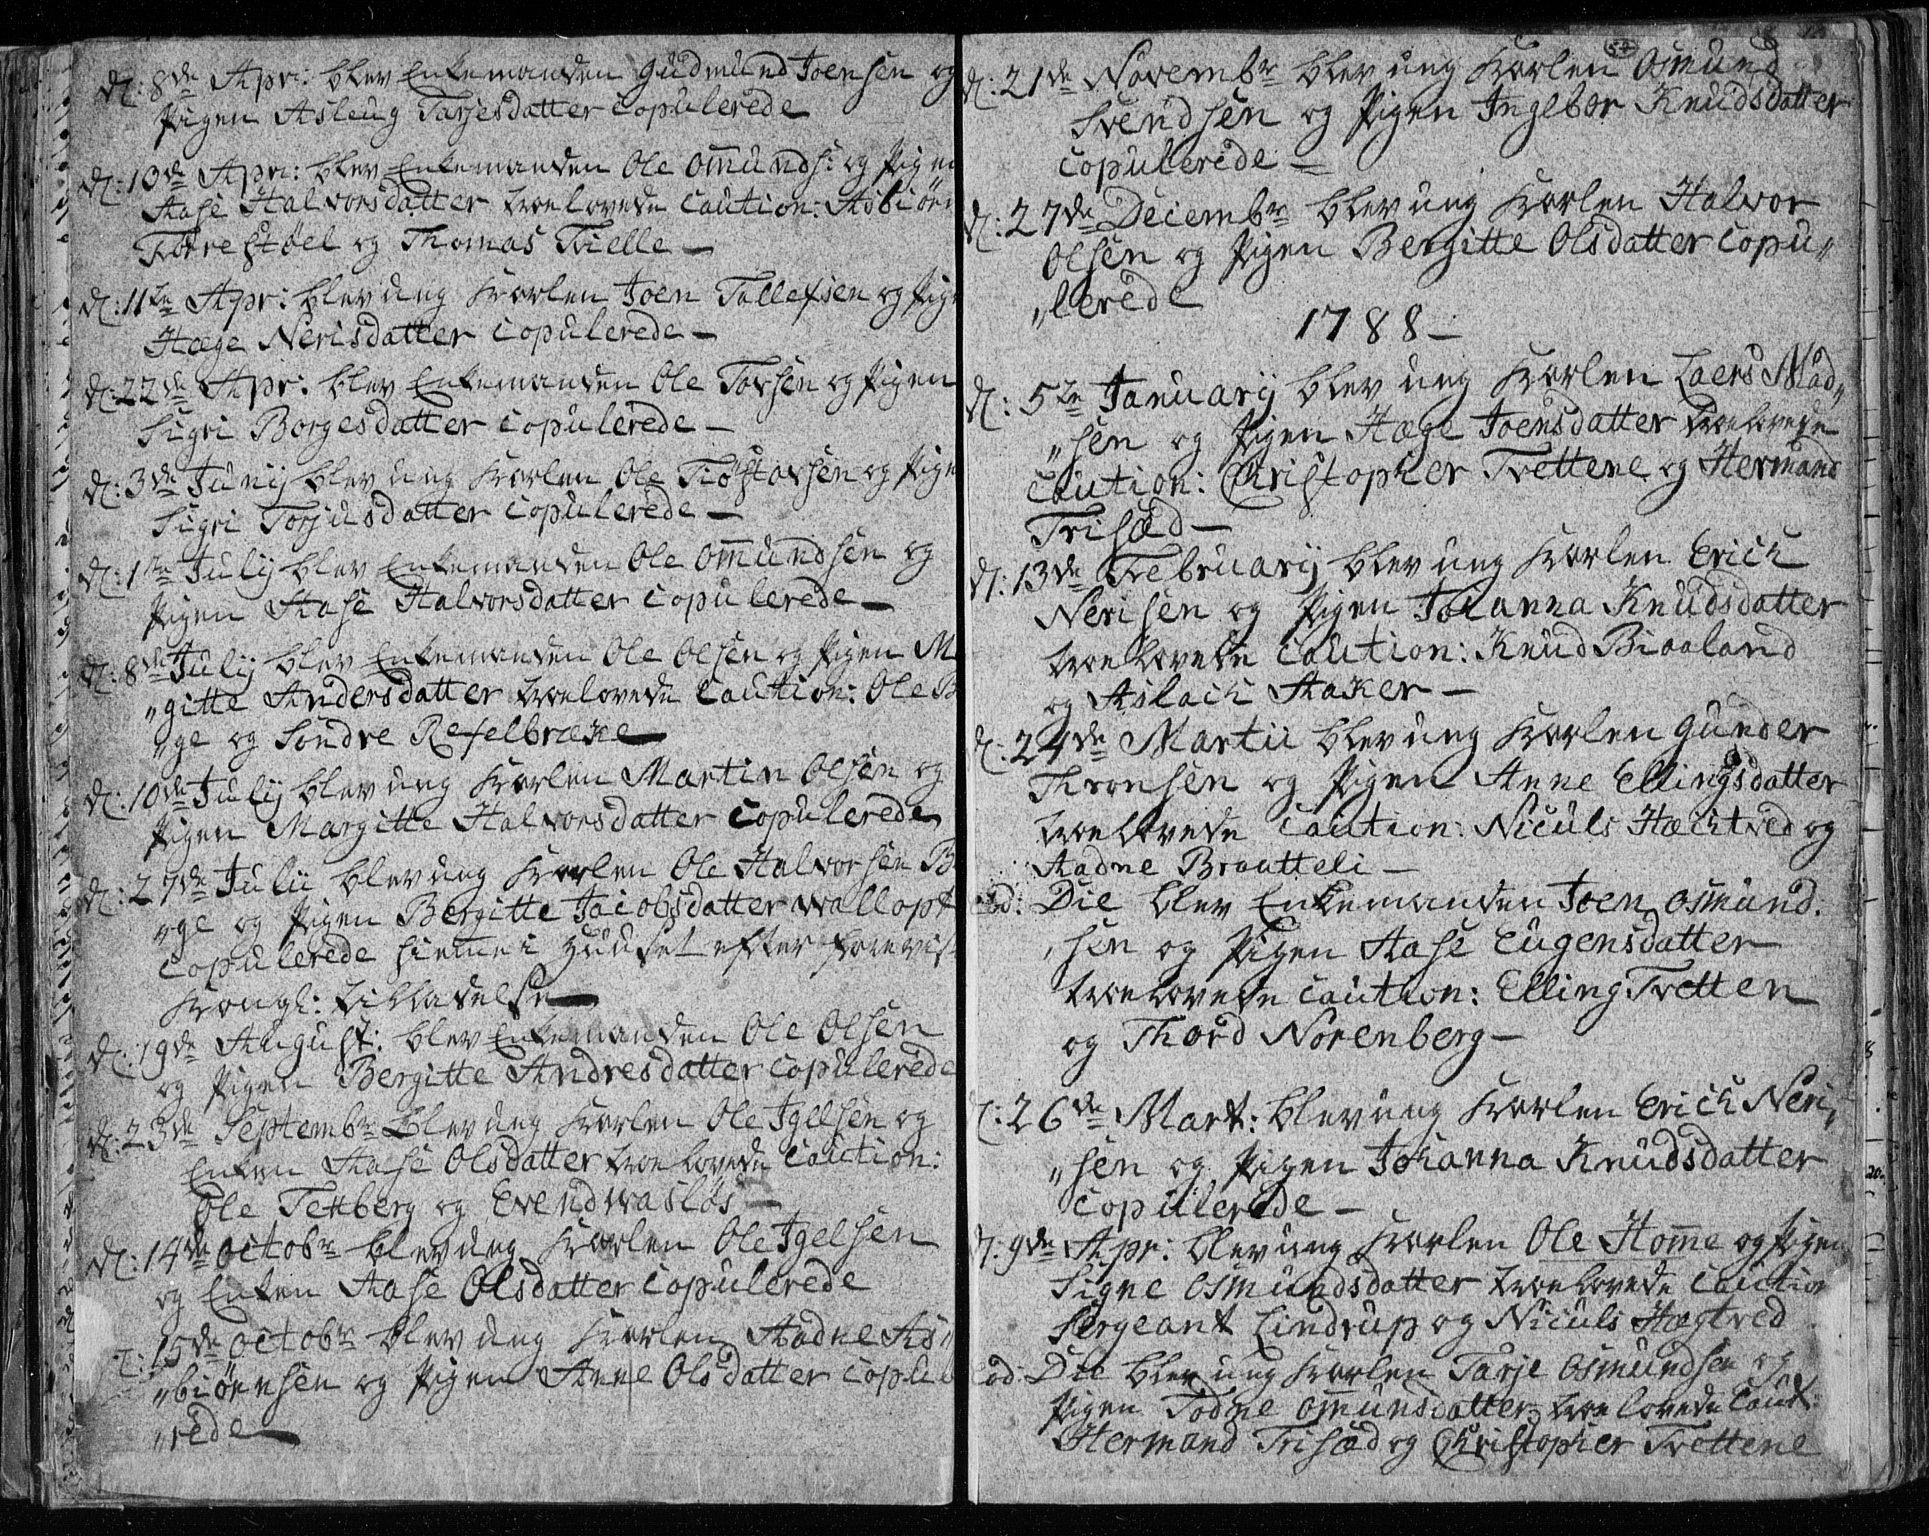 d: 8de Apr: blev Enkemanden Gudmund Joensen og
Pigen Asleug Tarjesdatter Copulerede
d: 10de Apr: blev Enkemanden Ole Om̅unds: og Pigen
Aase Halvorsdatter troelovede Caution: Asbiörn
Torrestöel og Thomas Tvielle —
d: 11te Apr: blev ung Karlen Joen Tallefsen og Pigen
Hæge Nerisdatter Copulerede —
d: 22de Apr: blev Enkemanden Ole Tovsen og Pigen
Sigri Borgesdatter Copulerede —
d: 3de Junij blev ung Karlen Ole Tiöstovsen og Pigen
Sigri Torjusdatter Copulerede —
d: 1te Julij blev Enkemanden Ole Om̅undsen og
Pigen Aase Halvorsdatter Copulerede —
d: 8de Julij blev Enkemanden Ole Olsen og Pigen M
„gitte Andersdatter troelovede Caution: Ole B
„ge og Söndre Refelbræke —
d: 10de Julij blev ung Karlen Martin Olsen og
Pigen Margitte Halvorsdatter Copulerede
d: 27de Julii blev ung Karlen Ole Halvorsen B
„ge og Pigen Bergitte Jacobsdatter Wallopt
Copulerede hiemme i Huuset efter foreviist
Kongl: tilladelse —
d: 19de August: blev Enkemanden Ole Olsen
og Pigen Bergitte Andresdatter Copulerede
d: 23de Septembr blev ung Karlen Ole Igelsen og
Enken Aase Olsdatter troelovede Caution:
Ole Tettberg og Evend Waslös —
d: 14de Octobr blev ung Karlen Ole Igelsen
og Enken Aase Olsdatter Copulerede
d: 15de Octobr blev ung Karlen Aadne As„
„biörnsen og Pigen Anne Olsdatter Copule
„rede —
54
d: 21de Novembr blev ung Karlen Osmund
Svendsen og Pigen Ingebor Knudsdatter
Copulerede —
d: 27de Decembr blev ung Karlen Halvor
Olsen og Pigen Bergitte Olsdatter Copu„
„lerede
1788 —
d: 5te Januarij blev ung Karlen Laers Mad„
„sen og Pigen Hæge Joensdatter troelovede
Caution: Christopher Tvettene og Hermand
Trisæd —
d: 13de Februarij blev ung Karlen Erich
Nerisen og Pigen Johanna Knudsdatter
troelovede Caution: Knud Biaaland
og Aslach Aaker —
d: 24de Martii blev ung Karlen Gunder
Thronsen og Pigen Anne Ellingsdatter
troelovede Caution: Niculs Hæchtved og
Aadne Broutteli —
Eod: Die blev Enkemanden Joen Osmund„
„sen og Pigen Aase Eugensdatter
troelovede Caution: Elling Tvetten
og Thord Norenberg —
d: 26de Mart: blev ung Karlen Erich Neri„
„sen og Pigen Johanna Knudsdatter
Copulerede —
d: 9de Apr: blev ung Karlen Ole Hom̅e og Pigen
Signe Osmundsdatter troelovede Caution
Sergeant Lindrup og Niculs Hægtved
Eod: Die blev ung Karlen Tarje Osmundsen og
Pigen Todne Om̅unsdatter troelovede Caut:
Hermand Trisæd og Christopher Tvettene